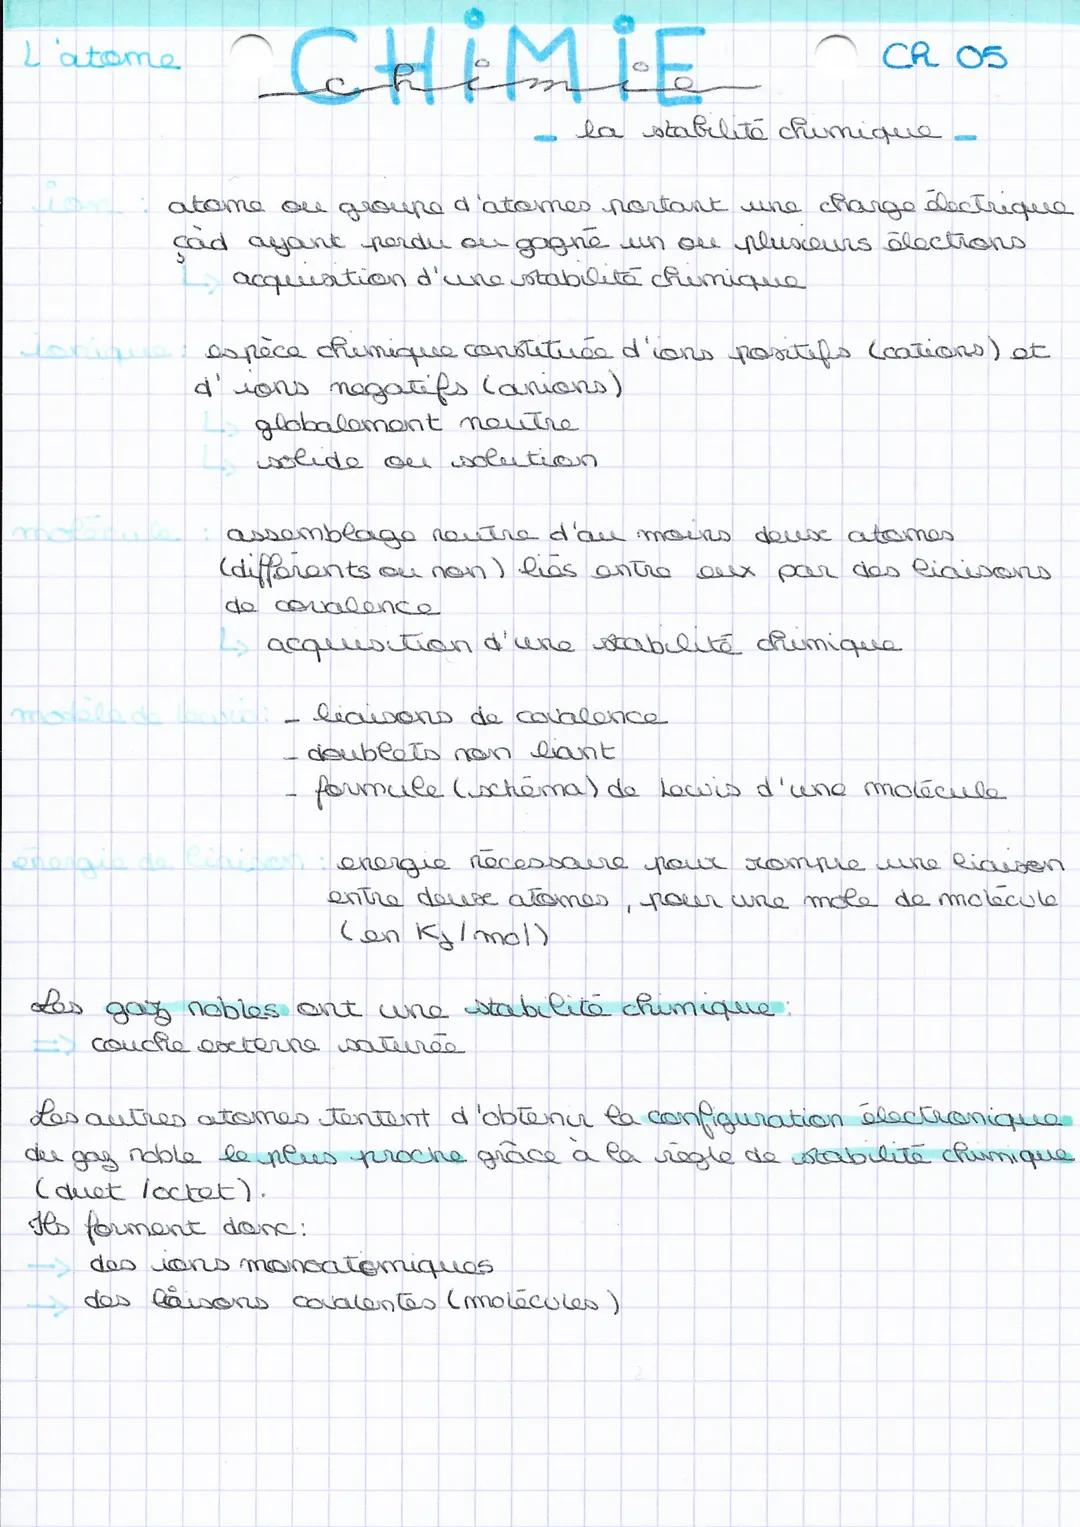 L'atome
CHiMiE
chimie
CR 05
- la stabilité chimique -
ion : atome ou groupe d'atomes portant une charge électrique
çàd ayant perdu ou gagné un ou plusieurs électrons
↳ acquisition d'une stabilité chimique
ionique : espèce chimique constituée d'ions positifs (cations) et
d'ions negatifs (anions)
↳ globalement neutre
↳ solide ou solution
molécule : assemblage neutre d'au moins deux atomes
(différents ou non) liés entre eux par des liaisons
de covalence
↳ acquisition d'une stabilité chimique
modèle de Lewis : - liaisons de covalence
- doublets non liant
- formule (schéma) de Lewis d'une molécule
énergie de liaison : energie nécessaire pour rompre une liaison
entre deux atomes, pour une mole de molécule
(en KJ/mol)
Les gaz nobles ont une stabilité chimique :
=> couche externe saturée
Les autres atomes tentent d'obtenir la configuration électronique
du gaz noble le plus proche grâce à la règle de stabilité chimique
(duet /octet).
Ils forment donc :
→ des ions monoatomiques
→ des liaisons covalentes (molécules)